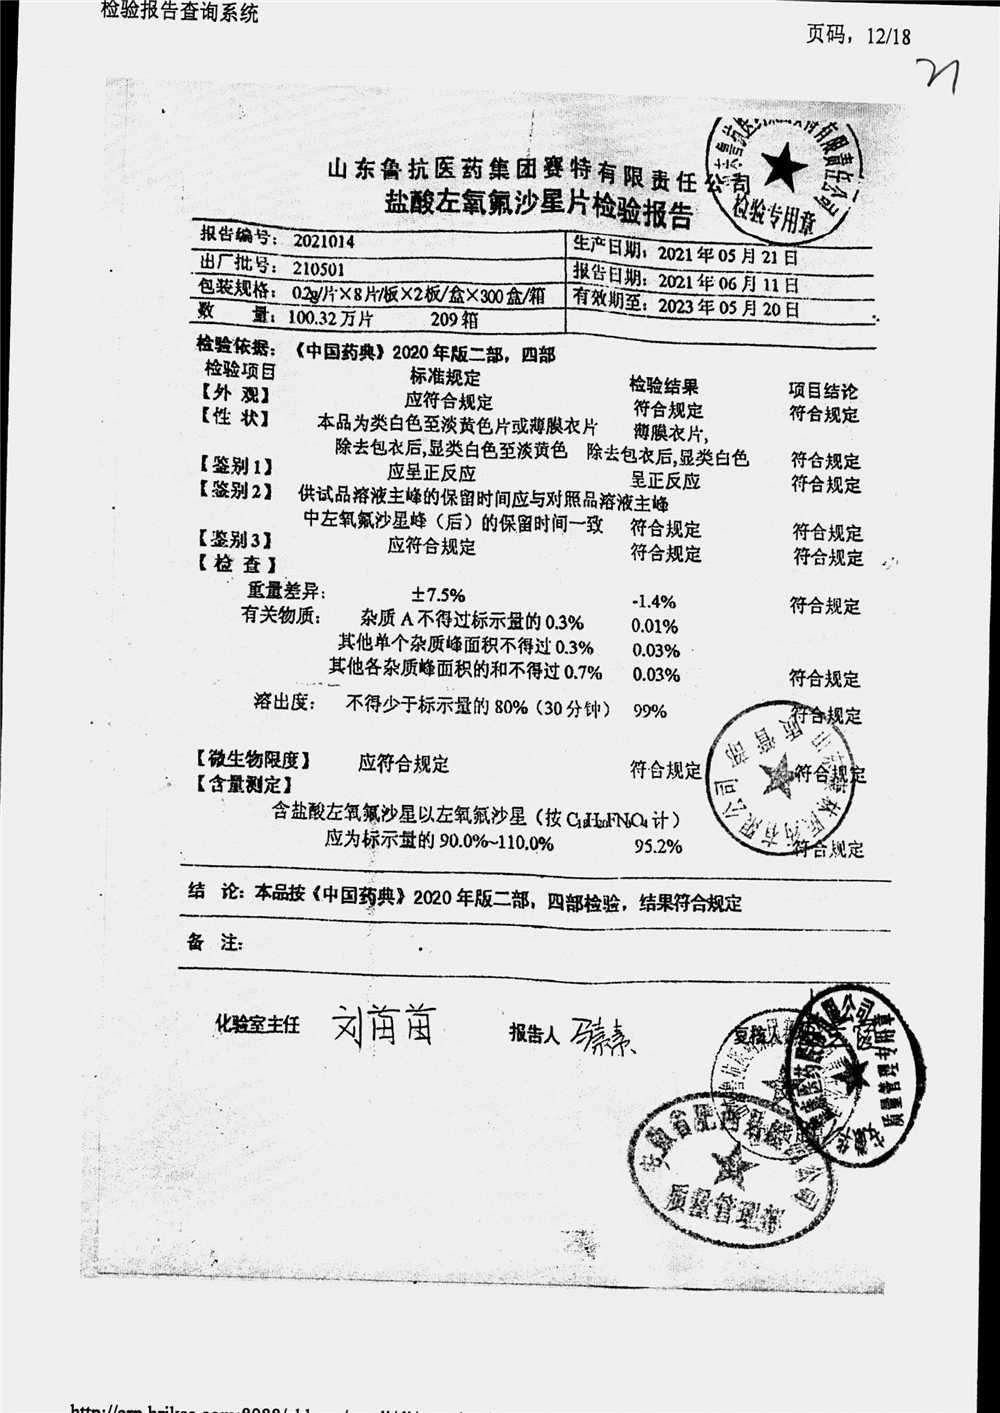 检验报告查询系统
页码，12/18
21
山东鲁抗医药集团赛特有限责任公司
盐酸左氧氟沙星片检验报告
检验专用章
报告编号： 2021014 生产日期：2021年05月21日
出厂批号： 210501 报告日期：2021年06月11日
包装规格： 0.2g/片×8片/板×2板/盒×300盒/箱 有效期至：2023年05月20日
数 量：100.32万片 209箱
检验依据：《中国药典》2020年版二部，四部
检验项目 标准规定 检验结果 项目结论
【外 观】 应符合规定 符合规定 符合规定
【性 状】 本品为类白色至淡黄色片或薄膜衣片 薄膜衣片，
除去包衣后,显类白色至淡黄色 除去包衣后,显类白色 符合规定
【鉴别1】 应呈正反应 呈正反应 符合规定
【鉴别2】 供试品溶液主峰的保留时间应与对照品溶液主峰
中左氧氟沙星峰（后）的保留时间一致 符合规定 符合规定
【鉴别3】 应符合规定 符合规定 符合规定
【检 查】
重量差异： ±7.5% -1.4% 符合规定
有关物质： 杂质A不得过标示量的0.3% 0.01%
其他单个杂质峰面积不得过0.3% 0.03%
其他各杂质峰面积的和不得过0.7% 0.03% 符合规定
溶出度： 不得少于标示量的80%（30分钟） 99% 符合规定
【微生物限度】 应符合规定 符合规定 符合规定
【含量测定】
含盐酸左氧氟沙星以左氧氟沙星（按C18H20FN3O4计）
应为标示量的90.0%~110.0% 95.2% 符合规定
结 论：本品按《中国药典》2020年版二部，四部检验，结果符合规定
备 注：
化验室主任 刘苗苗 报告人 马素素 复核人